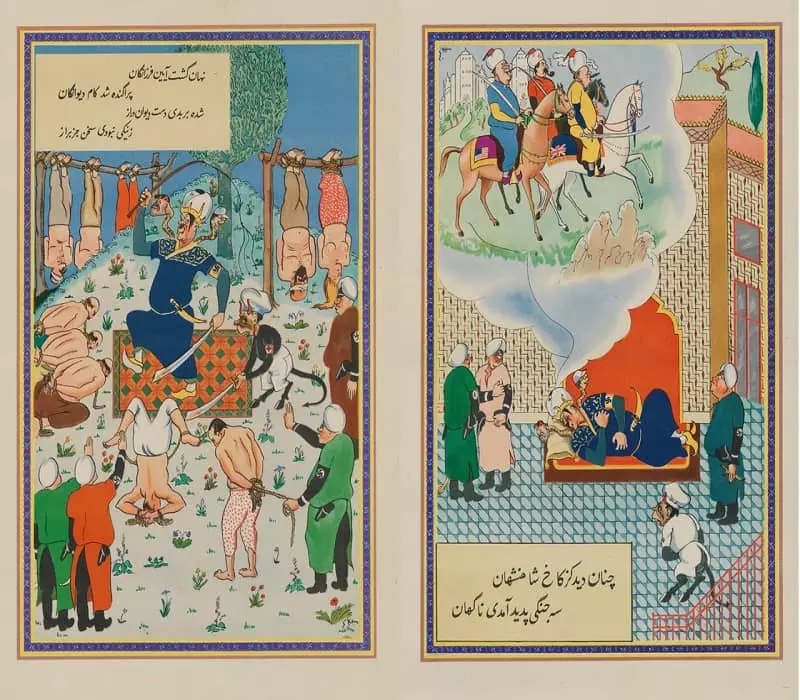 نهان گشت آیین فرزانگان
پراکنده شد کام دیوانگان
شده بر بدی دست دیوان دراز
ز نیکی نبودی سخن جز براز
چنان دید کز کاخ شاهنشهان
سه جنگی پدید آمدی ناگهان